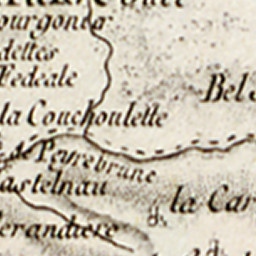 ourgonner
dettes
Fedeale
Bel
la Couchoulette
de Peyrebrune
astelnau
la Car
erandiere